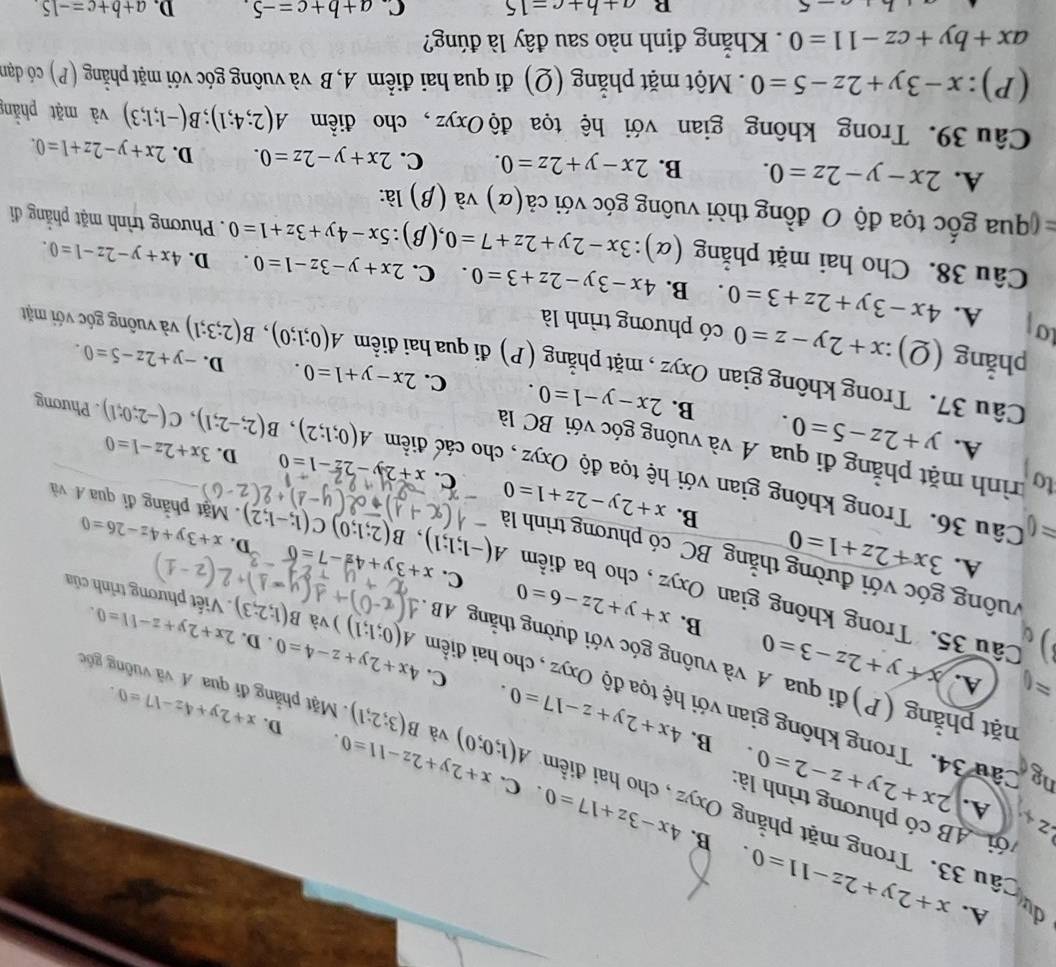 A. x+2y+2z−11=0. B. 4x−3z+17=0. C. x+2y+2z−11=0. D. x+2y+4z−17=0.
Câu 33. Trong mặt phẳng Oxyz, cho hai điểm A(1;0;0) và B(3;2;1). Mặt phẳng đi qua A và vuông góc
với AB có phương trình là:
A. 2x+2y+z−2=0. B. 4x+2y+z−17=0. C. 4x+2y+z−4=0. D. 2x+2y+z−11=0.
Câu 34. Trong không gian với hệ tọa độ Oxyz, cho hai điểm A(0;1;1) ) và B(1;2;3). Viết phương trình của
mặt phẳng (P) đi qua A và vuông góc với đường thẳng AB.
1(x−0)+1(y−1)+2(z−1)
A. x+y+2z−3=0 B. x+y+2z−6=0 C. x+3y+4z−7=0 D. x+3y+4z−26=0
Câu 35. Trong không gian Oxyz, cho ba điểm A(−1;1;1), B(2;1;0) C(1;−1;2). Mặt phẳng đi qua A và
vuông góc với đường thẳng BC có phương trình là
A. 3x+2z+1=0 B. x+2y−2z+1=0 C. x+2y−2z−1=0 D. 3x+2z−1=0
Câu 36. Trong không gian với hệ tọa độ Oxyz, cho các điểm A(0;1;2), B(2;−2;1), C(−2;0;1). Phương
trình mặt phẳng đi qua A và vuông góc với BC là
A. y+2z−5=0. B. 2x−y−1=0. C. 2x−y+1=0. D. −y+2z−5=0.
Câu 37. Trong không gian Oxyz, mặt phẳng (P) đi qua hai điểm A(0;1;0), B(2;3;1) và vuông góc với mặt
phẳng (Q): x+2y−z=0 có phương trình là
A. 4x−3y+2z+3=0. B. 4x−3y−2z+3=0. C. 2x+y−3z−1=0. D. 4x+y−2z−1=0.
Câu 38. Cho hai mặt phẳng (α): 3x−2y+2z+7=0,(β): 5x−4y+3z+1=0. Phương trình mặt phẳng đi
qua gốc tọa độ O đồng thời vuông góc với cả (α) và (β) là:
A. 2x−y−2z=0. B. 2x−y+2z=0. C. 2x+y−2z=0. D. 2x+y−2z+1=0.
Câu 39. Trong không gian với hệ tọa độ Oxyz, cho điểm A(2;4;1);B(−1;1;3) và mặt phẳng
(P): x−3y+2z−5=0. Một mặt phẳng (Q) đi qua hai điểm A,B và vuông góc với mặt phẳng (P) có dạng
ax+by+cz−11=0. Khẳng định nào sau đây là đúng?
B. a+b+c=15 C. a+b+c=−5. D. a+b+c=−15.